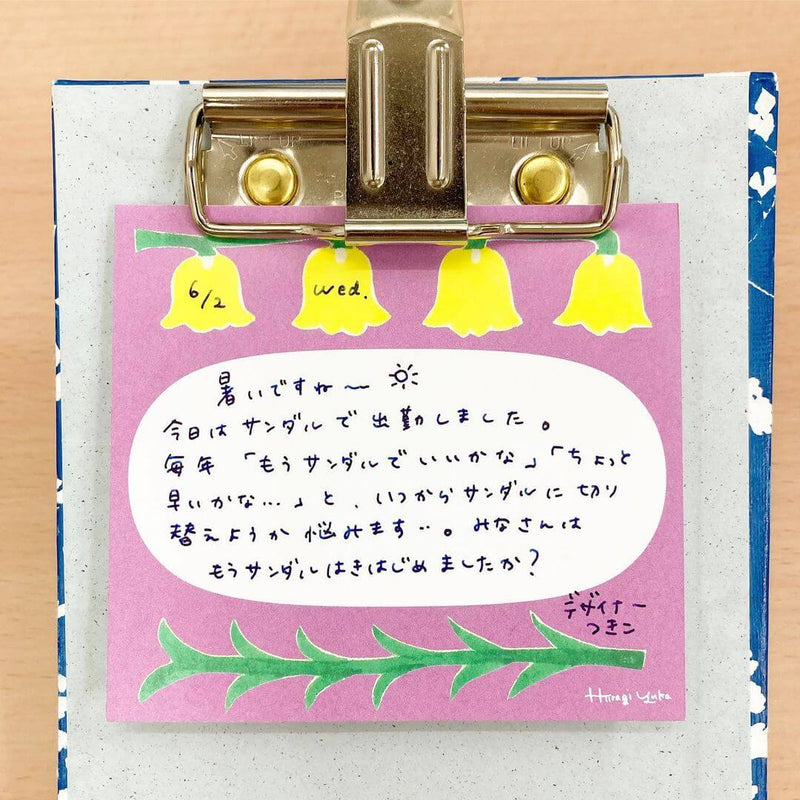 6/2
wed.
暑いですね〜
今日はサンダルで出勤しました。
毎年「もうサンダルでいいかな」「ちょっと
早いかな…」と、いつからサンダルに切り
替えようか悩みます…。みなさんは
もうサンダルはきはじめましたか?
デザイナー
つきこ
Hiiragi Yuka